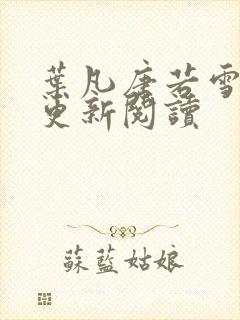 葉凡唐若雪
更新閱讀
蘇藍姑娘